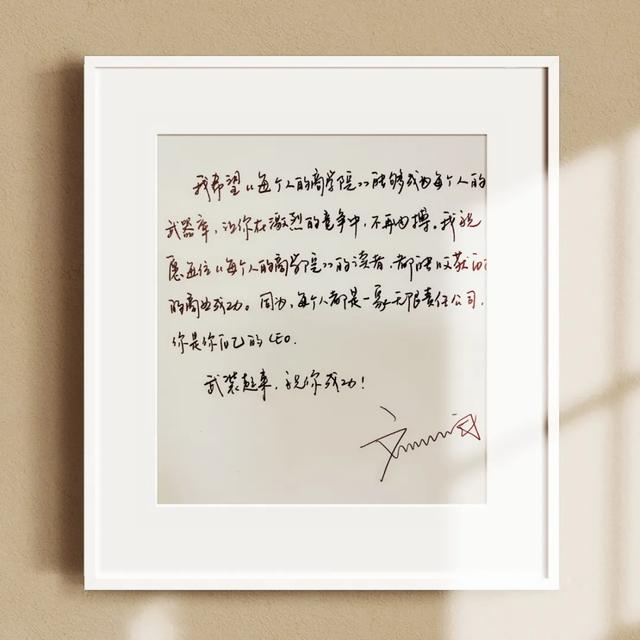 我希望《每个人的商学院》能够成为每个人的
武器库,让你在激烈的竞争中,不再肉搏。我祝
愿每位《每个人的商学院》的读者,都能收获自己
的商业成功。因为,每个人都是一家无限责任公司,
你是你自己的CEO.
武装起来,祝你成功!